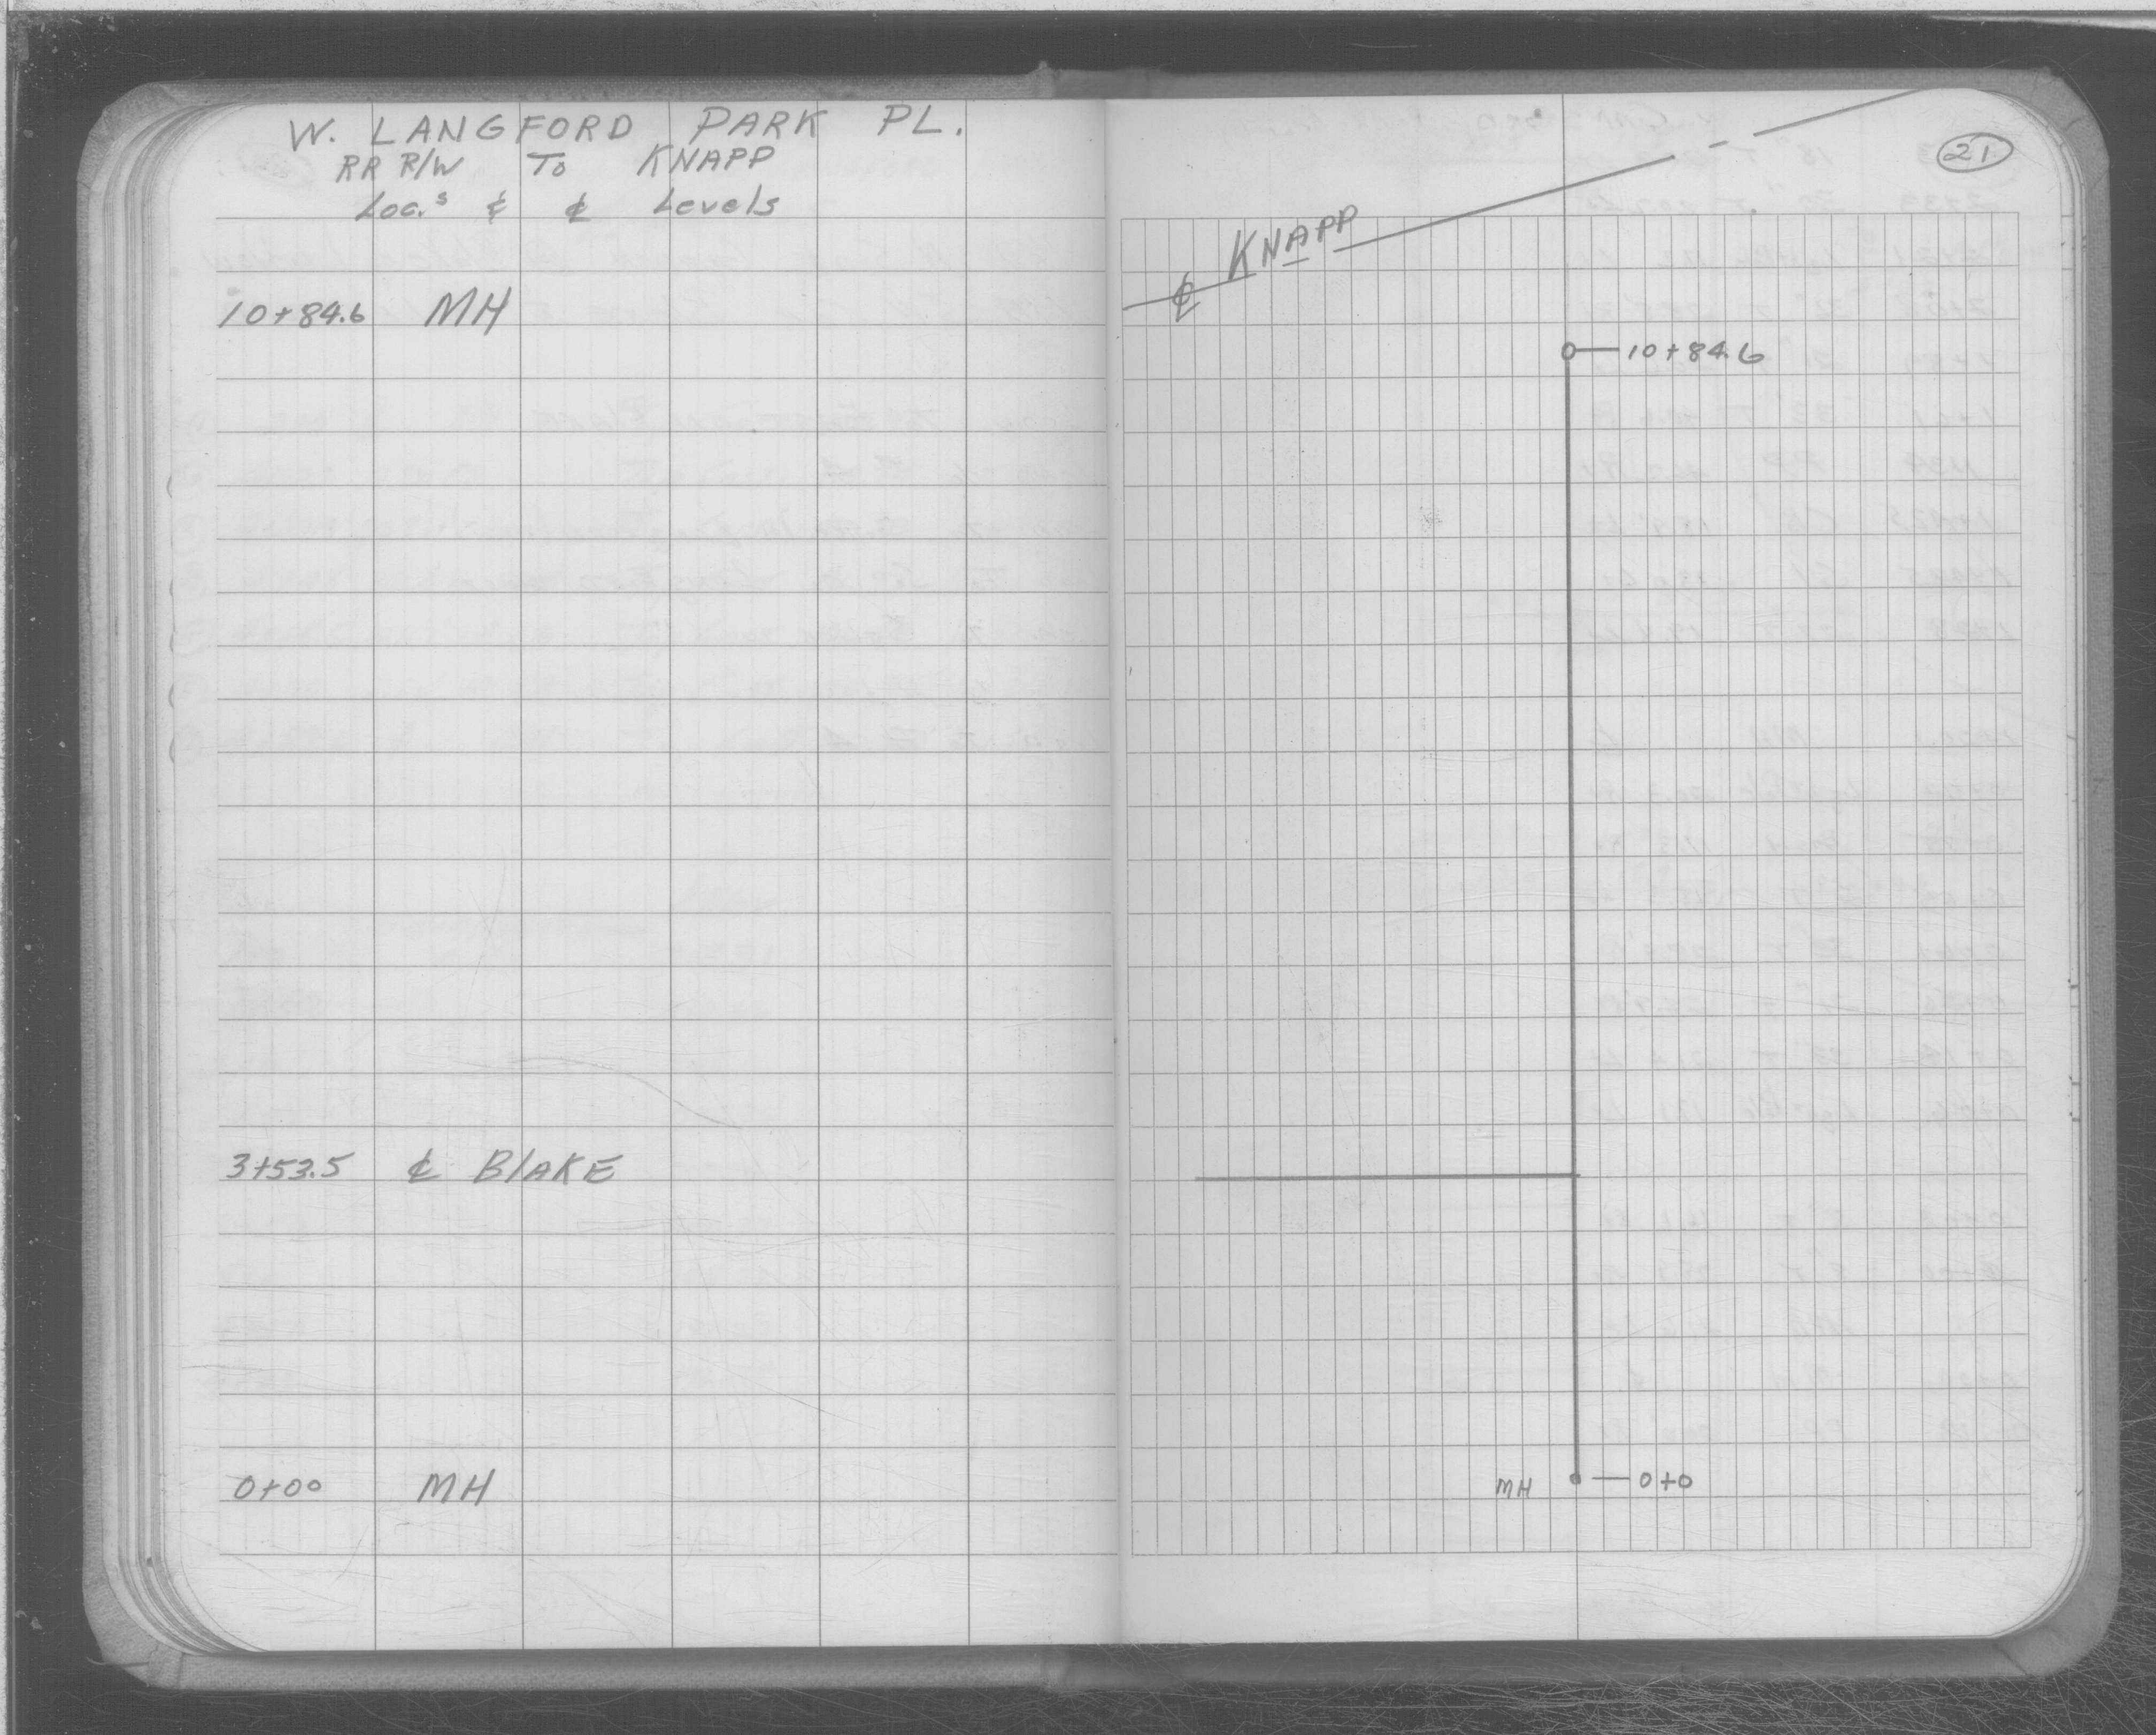 W. LANGFORD PARK PL.
RR R/W To KNAPP
Loc.s & ℄ Levels
10+84.6 MH
3+53.5 ℄ BlAKE
0+00 MH
21
℄ KNAPP
10+84.6
MH 0+0